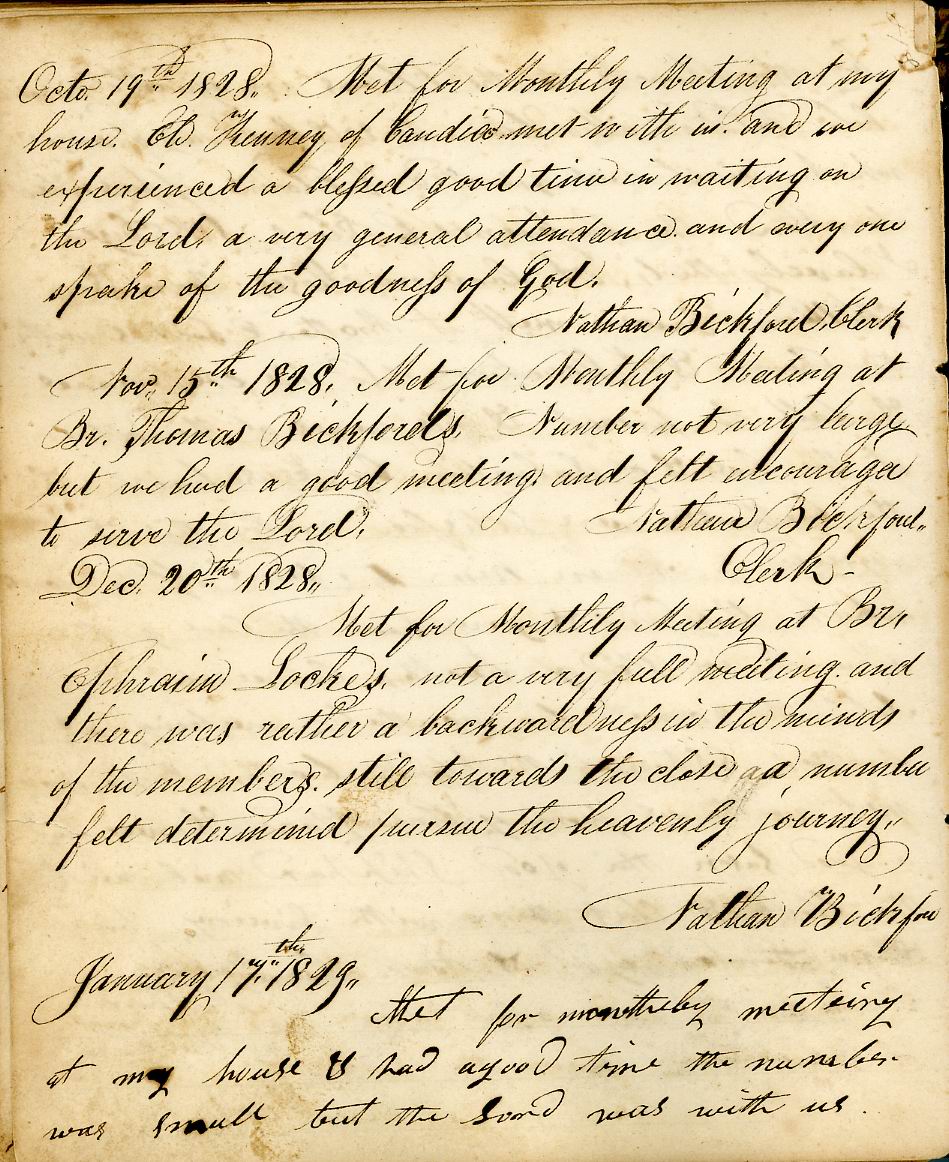 Octo. 19th 1828,, Met for Monthly Meeting at my
house. Eld. Kenney of Candia met with us. and we
experienced a blessed good time in waiting on
the Lord, a very general attendance. and every one
spake of the goodness of God.
Nathan Bickford, Clerk
Nov. 15th 1828, Met for Monthly Meeting at
Br. Thomas Bickfords. Number not very large
but we had a good meeting. and felt encourage
to serve the Lord. Nathan Bickford,,
Clerk -
Dec. 20th 1828,,
Met for Monthly Meeting at Br.
Ephraim Lockes. not a very full meeting. and
there was rather a backwardness in the minds
of the members. still towards the close a numbe
felt determined pursue the heavenly journey,,
Nathan Bickfor
January 17th 1829,,
Met for monthely meeteing
at my house & had a good time the number
was small but the Lord was with us.